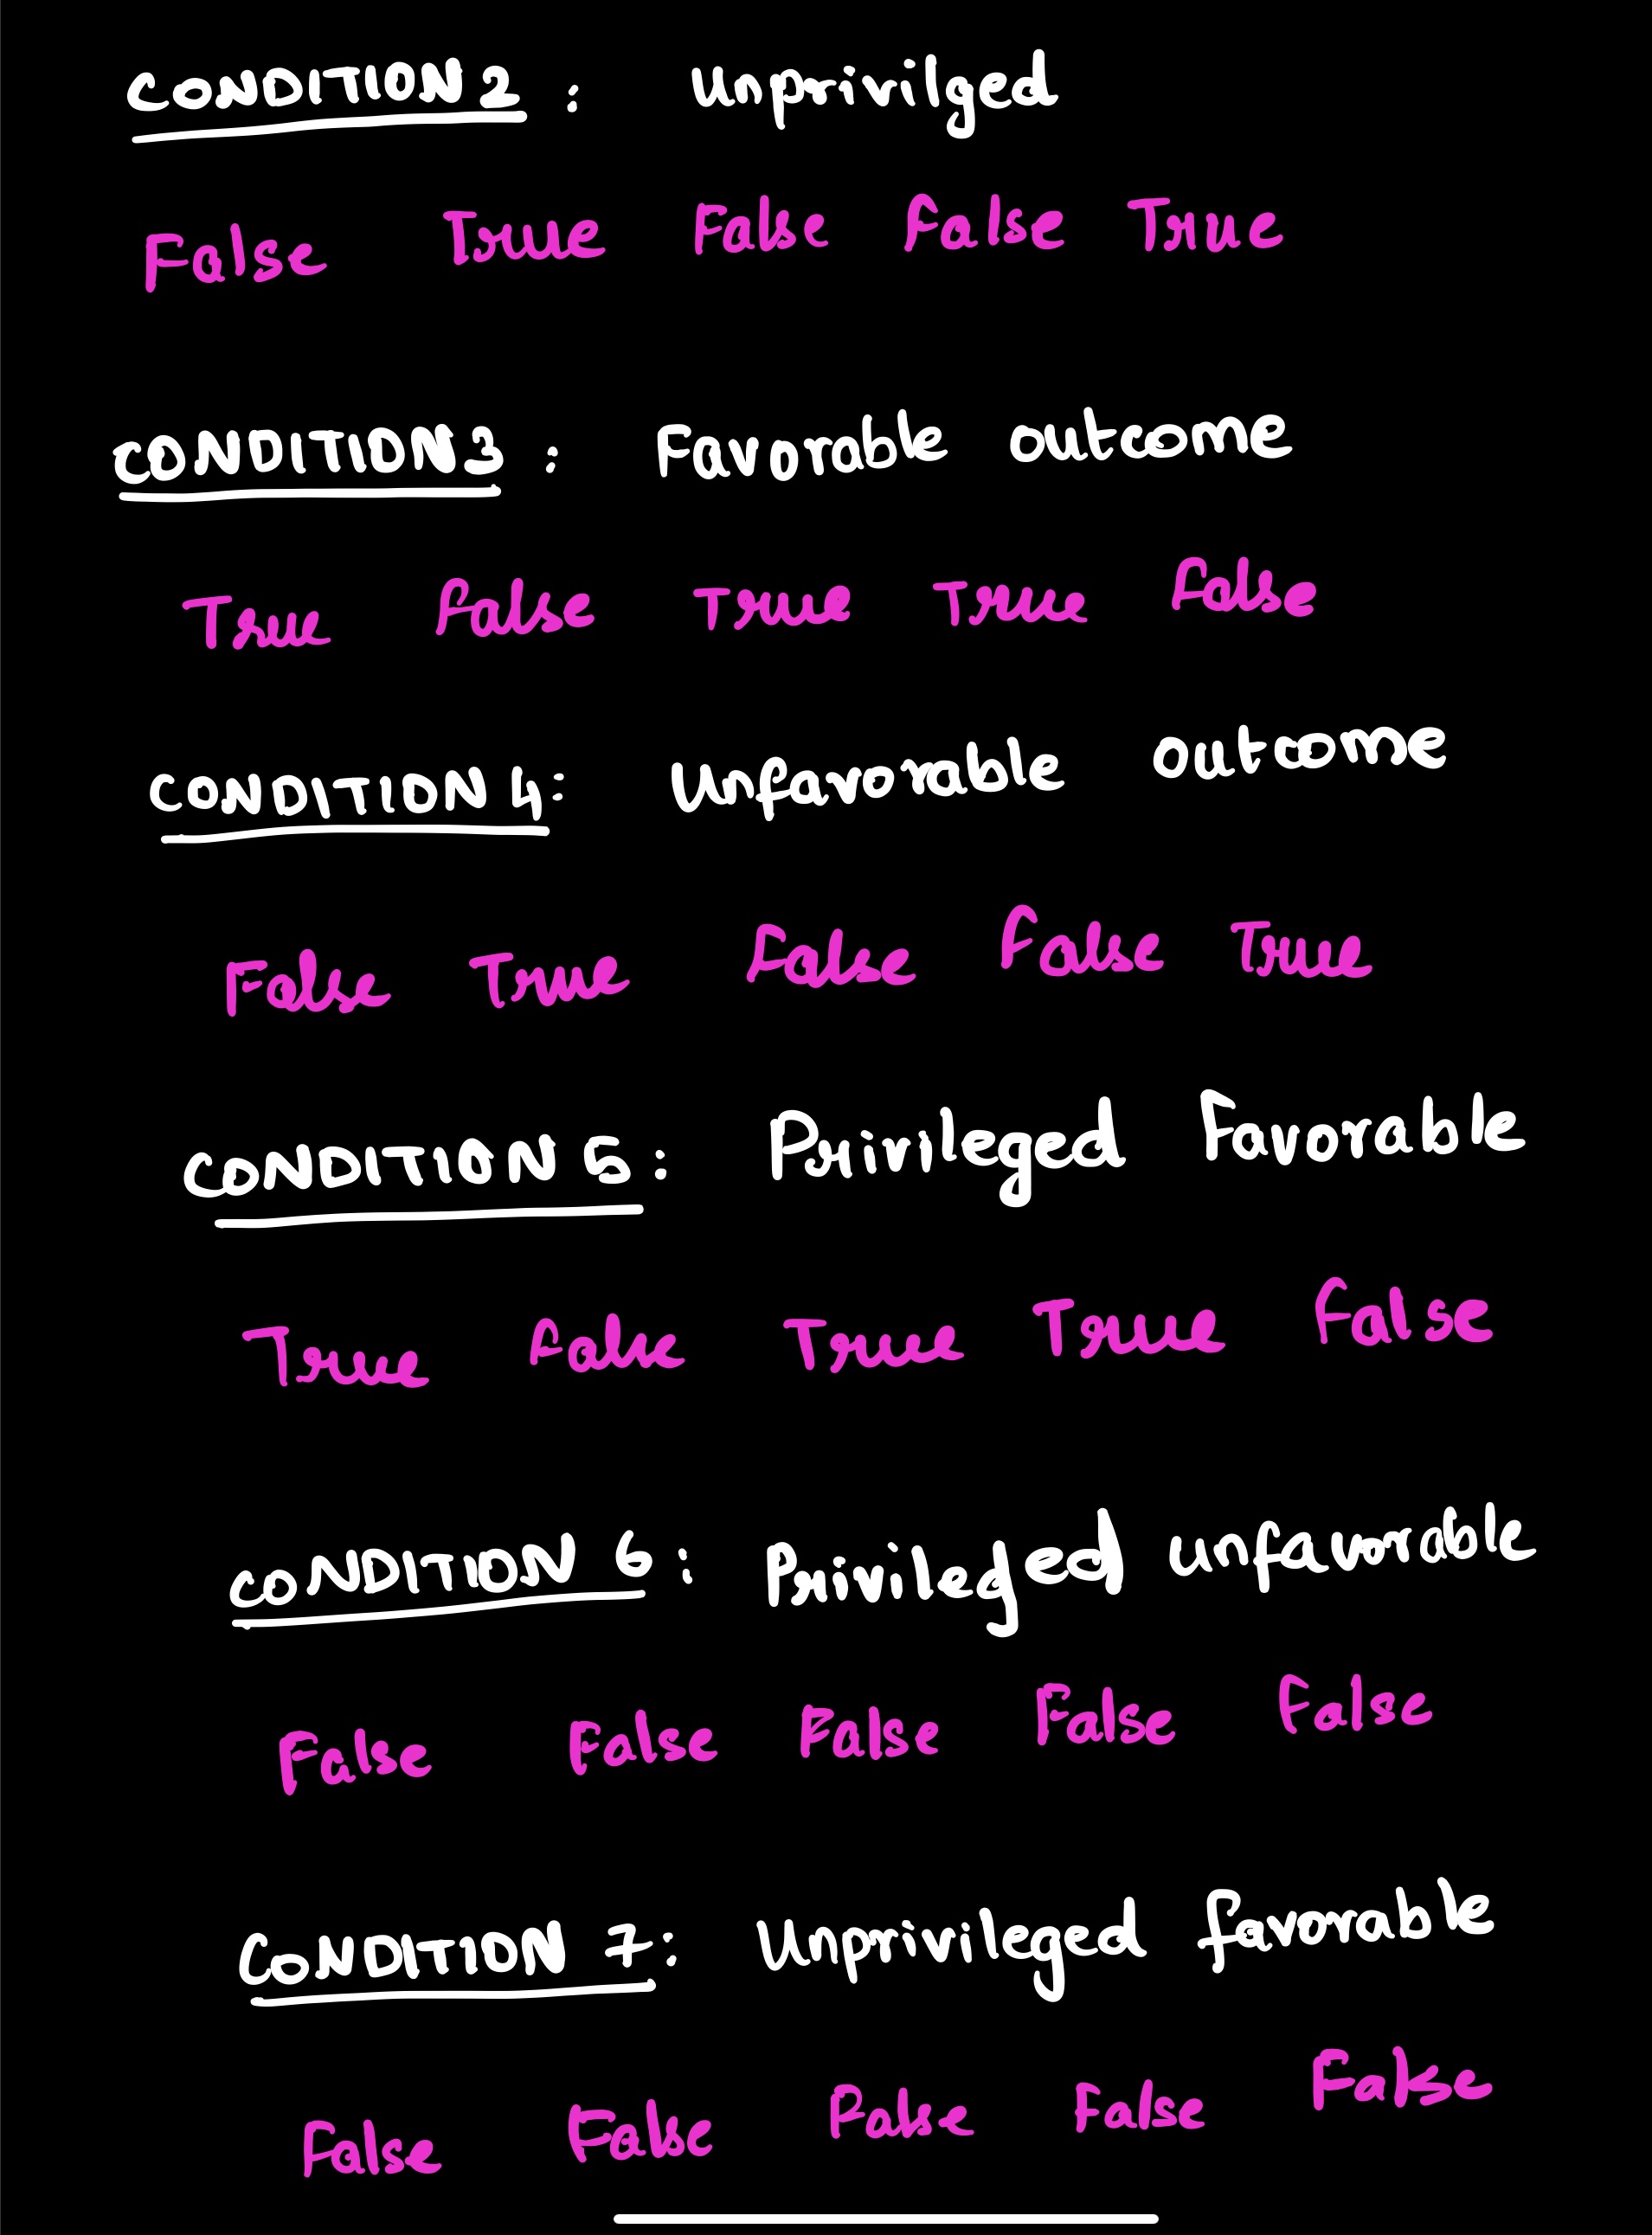 CONDITION 2 : Unprivilged
False True False False True
CONDITION 3 : Favorable outcome
True False True True False
CONDITION 4: Unfavorable outcome
False True False False True
CONDITION 5: Privileged Favorable
True False True True False
CONDITION 6: Privileged unfavorable
False False False False False
CONDITION 7: Unprivileged favorable
False False False False False